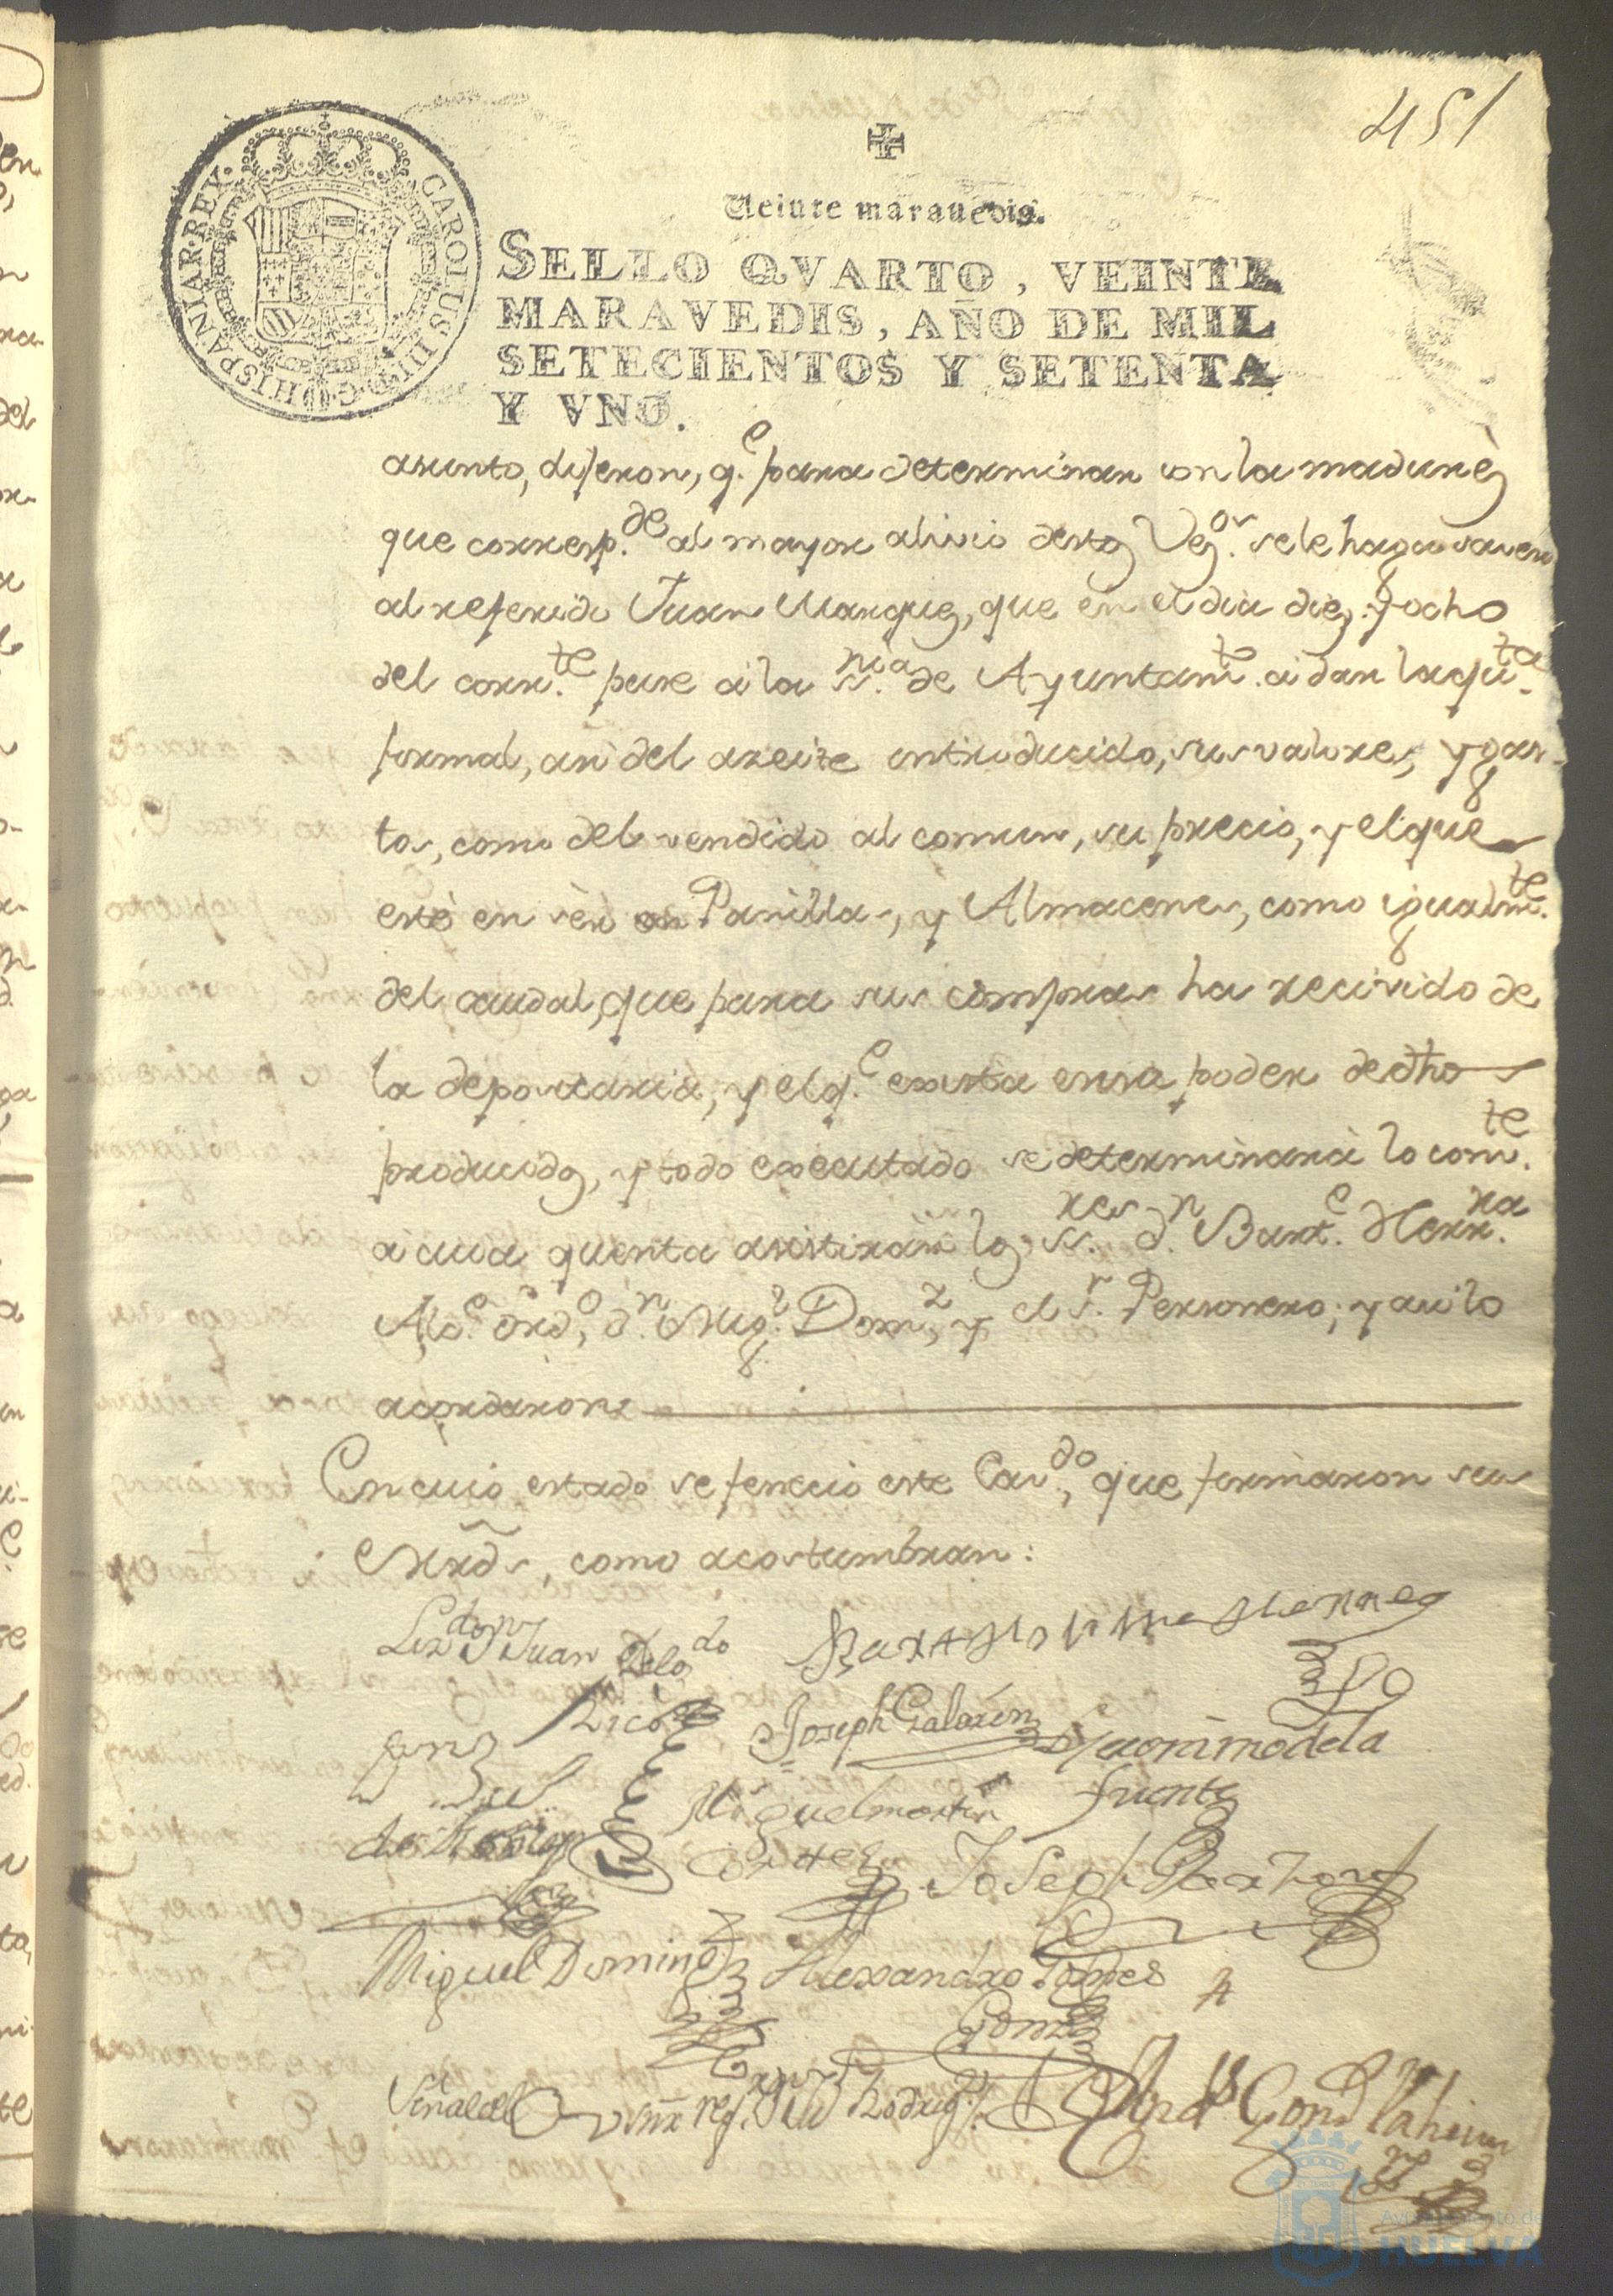 451
Veinte maravedis.
SELLO QVARTO, VEINTE
MARAVEDIS, AÑO DE MIL
SETECIENTOS Y SETENTA
Y VNO.
CAROLUS III D G HISPANIAR REX
asunto, dijeron, q.e para determinar con la madurèz
que corresp.de al mayor alivio destos Vez.os se le haga saver
al referido Juan Marquez, que en el dia diez, y ocho
del corr.te pase à la ss.ria de Ayuntam.to à dar la qu.ta
formal, asi del azeite introducido, sus valores, y gas-
tos, como del vendido al comun, su precio, y el que
esté en sèr en Panillas, y Almacenes, como igualm.te
del caudal, que para sus compras ha recivido de
la depositaria, y el q.e exista en su poder de dho
producido, y todo executado se determinarà lo com.te
à cuia quenta asistiràn los ss.res d.n Bart.e Herr.ra
Alc.e ord.o, d.n Mig.l Dom.z, y el s.r Personero; y asi lo
acordaron
En cuio estado se feneció este Cav.do, que firmaron sus
Mrds, como acostumbran:
Liz.do D.n Juan Delg.do
Rico
Bartholome Herrera
Joseph Galarin
Geronimo de la
Fuente
Miguel Martin
Joseph
Miguel Doming.z
Alexandro
Gomz
Señal del Rex.or Rodrig.z
And.s Gonz
Ayuntamiento de
HUELVA